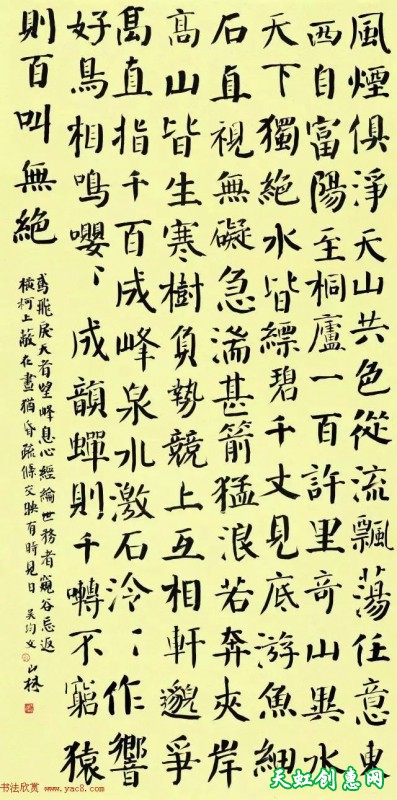 風煙俱淨天山共色從流飄蕩任意東
西自富陽至桐廬一百許里奇山異水
天下獨絶水皆縹碧千丈見底游魚細
石直視無礙急湍甚箭猛浪若奔夾岸
高山皆生寒樹負勢競上互相軒邈爭
高直指千百成峰泉水激石泠、作響
好鳥相鳴嚶、成韻蟬則千囀不窮猿
則百叫無絶
鳶飛戾天者望峰息心經綸世務者窺谷忘返
橫柯上蔽在晝猶昏疏條交映有時見日 吳均文
书法欣赏 www.yac8.com
天虹创惠网